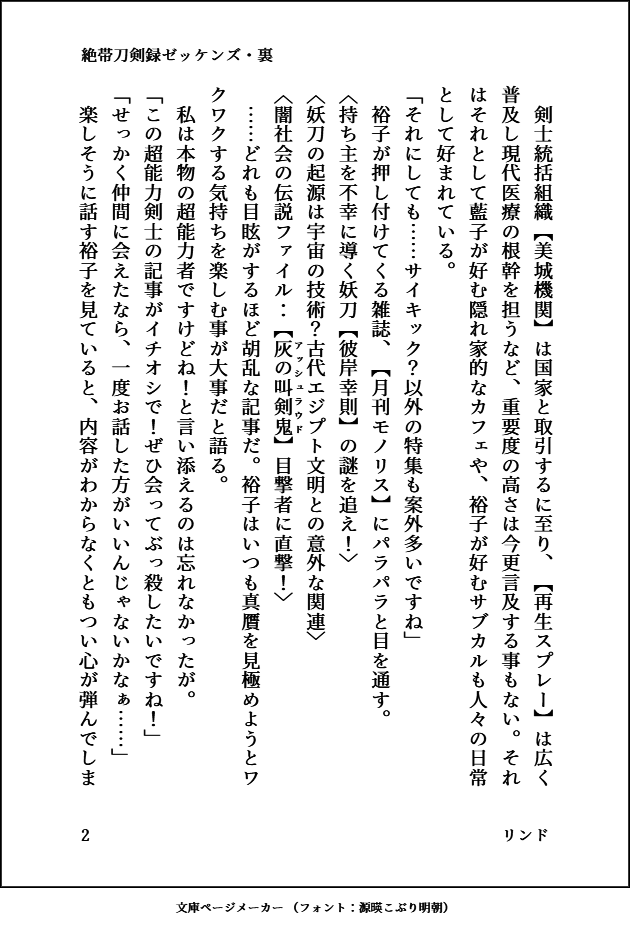 絶帯刀剣録ゼッケンズ・裏
　剣士統括組織【美城機関】は国家と取引するに至り、【再生スプレー】は広く
普及し現代医療の根幹を担うなど、重要度の高さは今更言及する事もない。それ
はそれとして藍子が好む隠れ家的なカフェや、裕子が好むサブカルも人々の日常
として好まれている。
「それにしても……サイキック？以外の特集も案外多いですね」
　裕子が押し付けてくる雑誌、【月刊モノリス】にパラパラと目を通す。
〈持ち主を不幸に導く妖刀【彼岸幸則】の謎を追え！〉
〈妖刀の起源は宇宙の技術？古代エジプト文明との意外な関連〉
〈闇社会の伝説ファイル：【灰の叫剣鬼アッシュラウド】目撃者に直撃！〉
　……どれも目眩がするほど胡乱な記事だ。裕子はいつも真贋を見極めようとワ
クワクする気持ちを楽しむ事が大事だと語る。
　私は本物の超能力者ですけどね！と言い添えるのは忘れなかったが。
「この超能力剣士の記事がイチオシで！ぜひ会ってぶっ殺したいですね！」
「せっかく仲間に会えたなら、一度お話した方がいいんじゃないかなぁ……」
　楽しそうに話す裕子を見ていると、内容がわからなくともつい心が弾んでしま
リンド
2
文庫ページメーカー（フォント：源暎こぶり明朝）